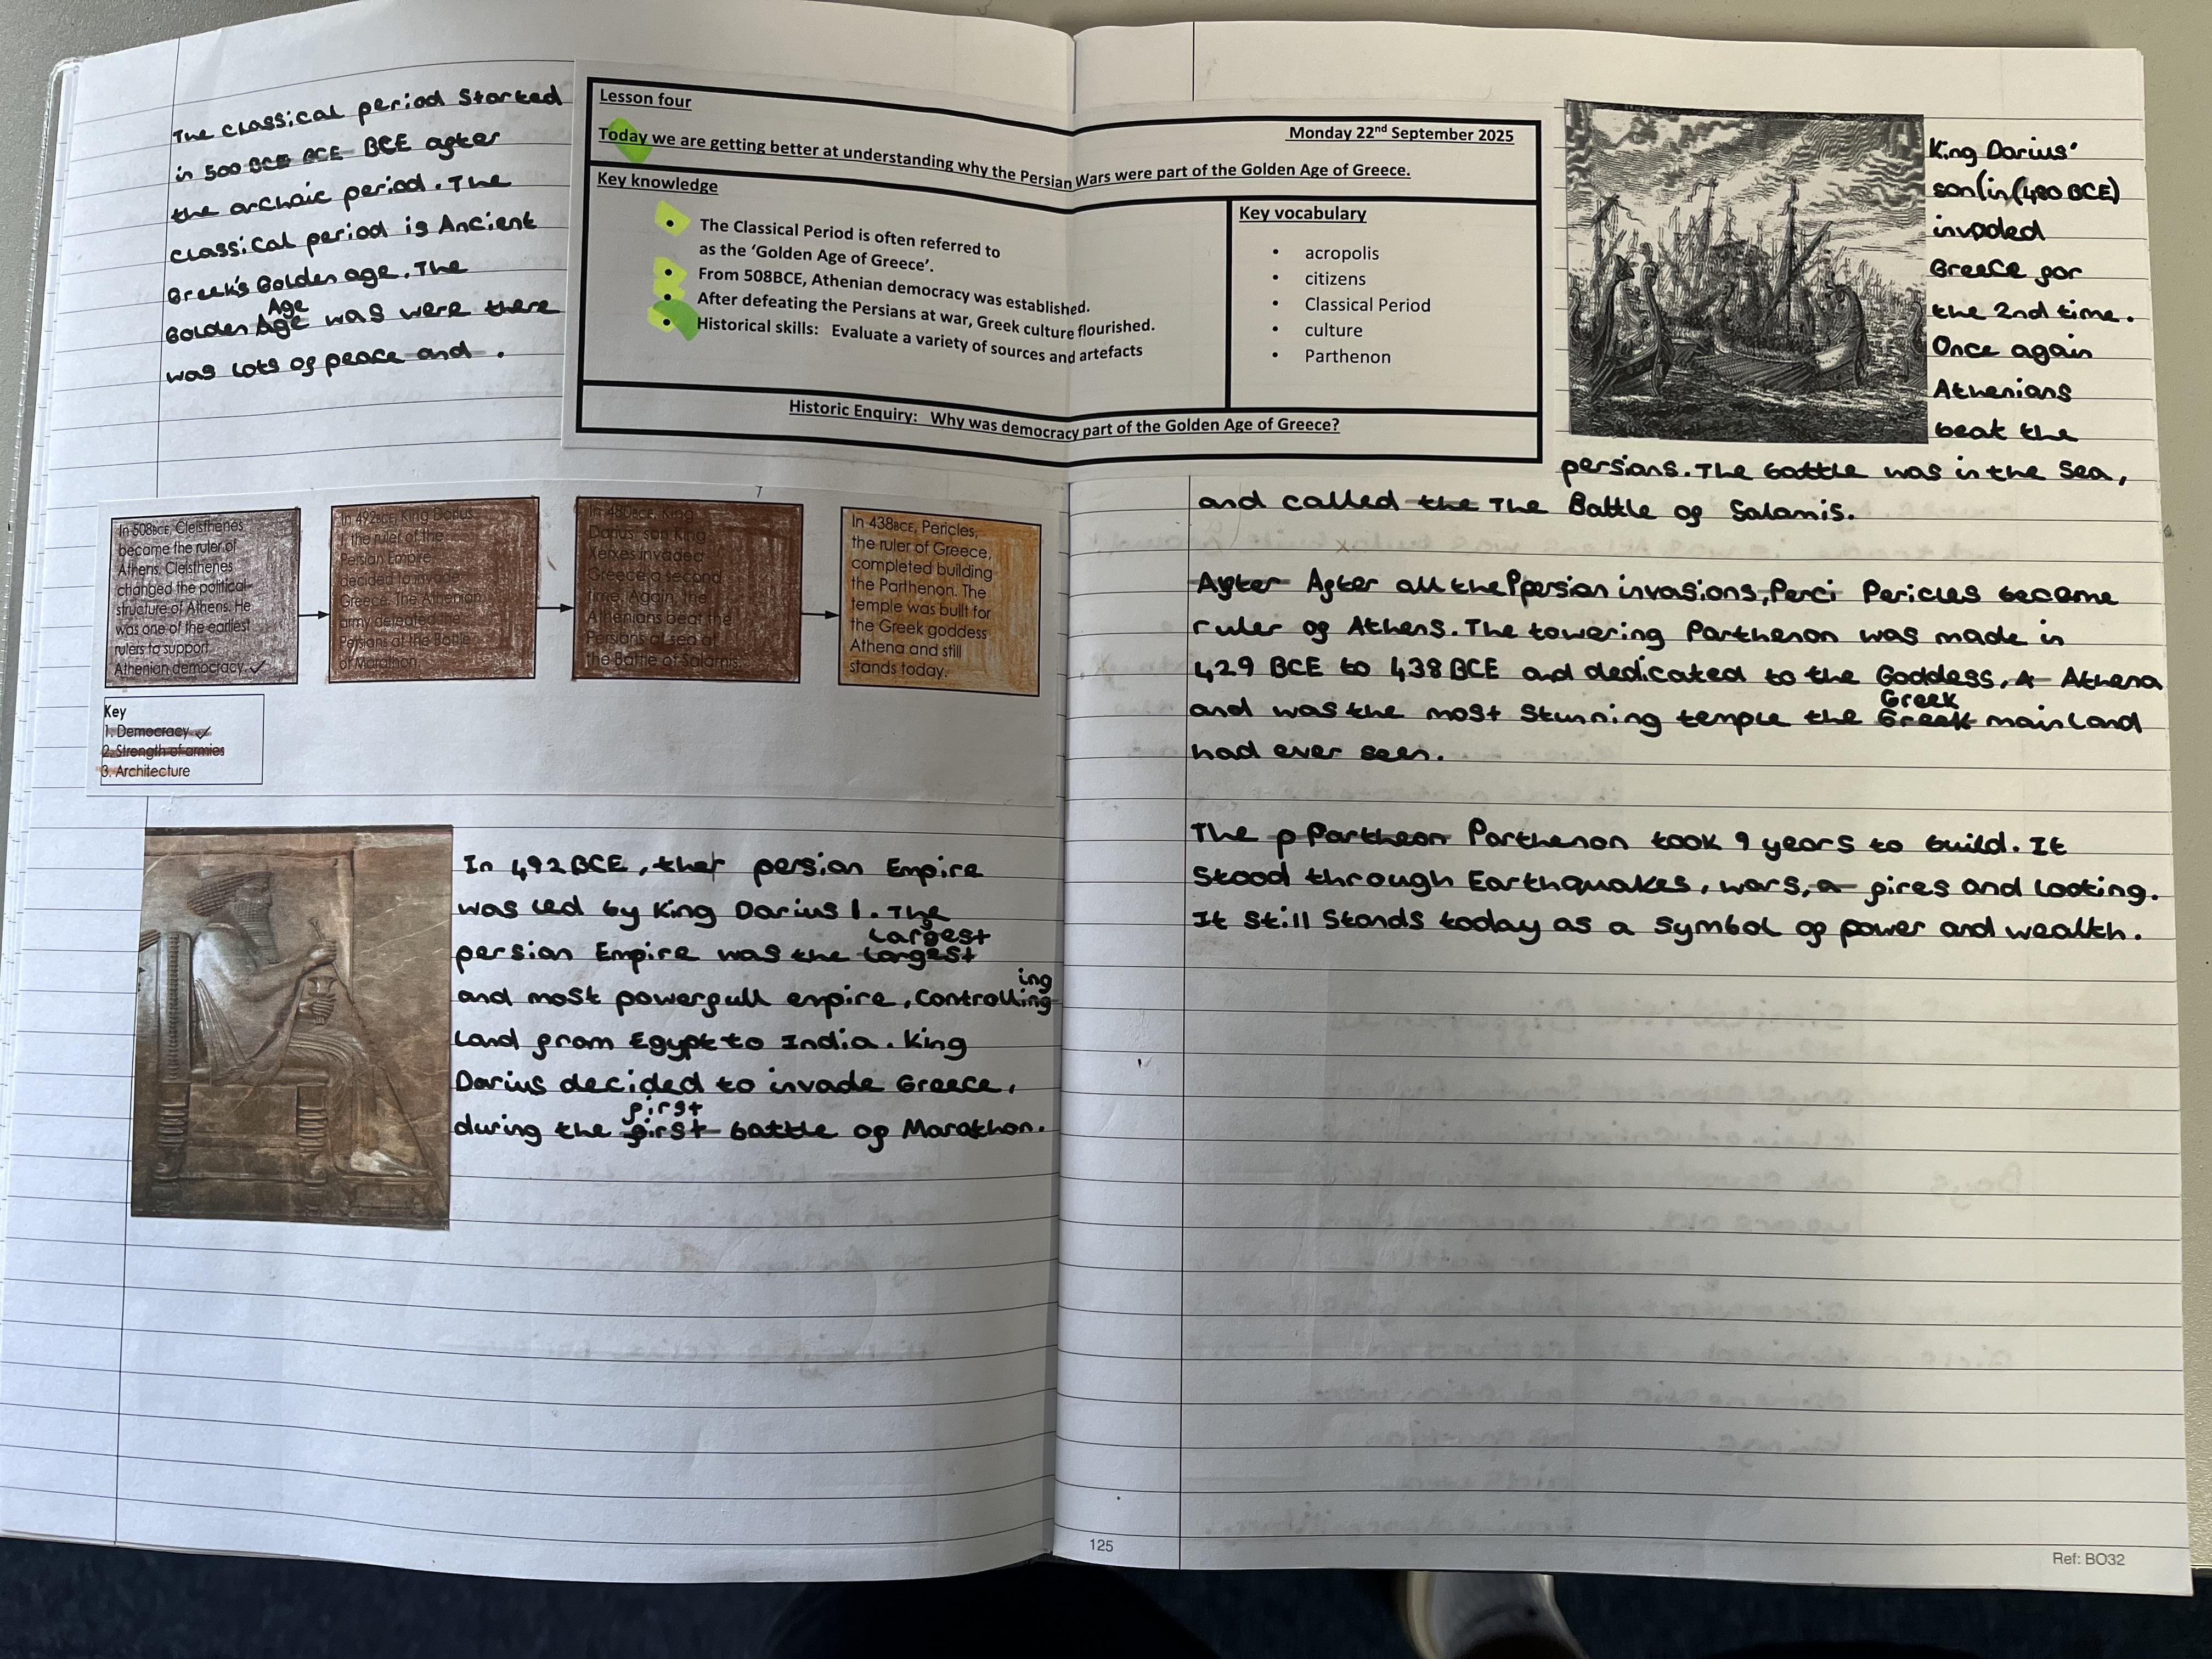 The classical period Started
in 500 BCE BCE BCE after
the archaic period. The
classical period is Ancient
Greek's Golden age. The
Age
Golden Age was were there
was lots of peace and .
Lesson four
Monday 22nd September 2025
Today we are getting better at understanding why the Persian Wars were part of the Golden Age of Greece.
Key knowledge
• The Classical Period is often referred to
as the ‘Golden Age of Greece’.
• From 508BCE, Athenian democracy was established.
• After defeating the Persians at war, Greek culture flourished.
• Historical skills: Evaluate a variety of sources and artefacts
Key vocabulary
• acropolis
• citizens
• Classical Period
• culture
• Parthenon
Historic Enquiry: Why was democracy part of the Golden Age of Greece?
In 508BCE, Cleisthenes
became the ruler of
Athens. Cleisthenes
changed the political
structure of Athens. He
was one of the earliest
rulers to support
Athenian democracy. ✓
In 492BCE, King Darius
I, the ruler of the
Persian Empire
decided to invade
Greece. The Athenian
army defeated the
Persians at the Battle
of Marathon.
In 480BCE, King
Darius' son King
Xerxes invaded
Greece a second
time. Again, the
Athenians beat the
Persians at sea at
the Battle of Salamis.
In 438BCE, Pericles,
the ruler of Greece,
completed building
the Parthenon. The
temple was built for
the Greek goddess
Athena and still
stands today.
Key
1. Democracy ✓
2. Strength of armies
3. Architecture
In 492BCE, the persian Empire
was led by King Darius I. The
largest
persian Empire was the largest
ing
and most powerfull empire, controlling
land from Egypt to India. King
Darius decided to invade Greece,
first
during the first battle of Marathon.
King Darius'
son (in (480 BCE)
invaded
Greece for
the 2nd time.
Once again
Athenians
beat the
persians. The battle was in the Sea,
and called the The Battle of Salamis.
After After all the Ppersian invasions, Perci Pericles became
ruler of Athens. The towering Parthenon was made in
429 BCE to 438 BCE and dedicated to the Goddess, A Athena
Greek
and was the most stunning temple the Greek mainland
had ever seen.
The p Partheon Parthenon took 9 years to build. It
Stood through Earthquakes, wars, a fires and looting.
It still Stands today as a symbol of power and wealth.
125
Ref: BO32